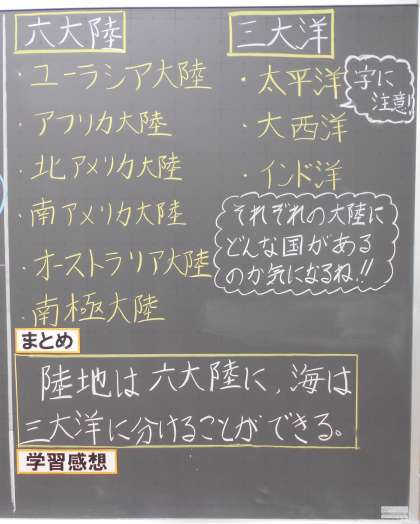 六大陸
・ユーラシア大陸
・アフリカ大陸
・北アメリカ大陸
・南アメリカ大陸
・オーストラリア大陸
・南極大陸
三大洋
・太平洋
字に
注意!
・大西洋
・インド洋
それぞれの大陸に
どんな国がある
のか気になるね!!
まとめ
陸地は六大陸に、海は
三大洋に分けることができる。
学習感想